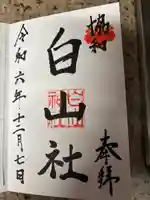 奉拝
白山社
令和六年十二月七日